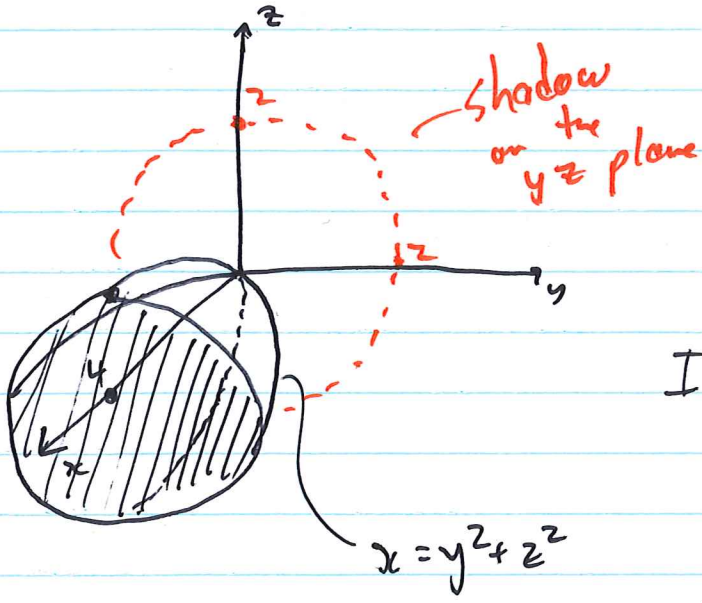 z
2
shadow
on the
yz plane
2
y
4
x
I
x = y² + z²